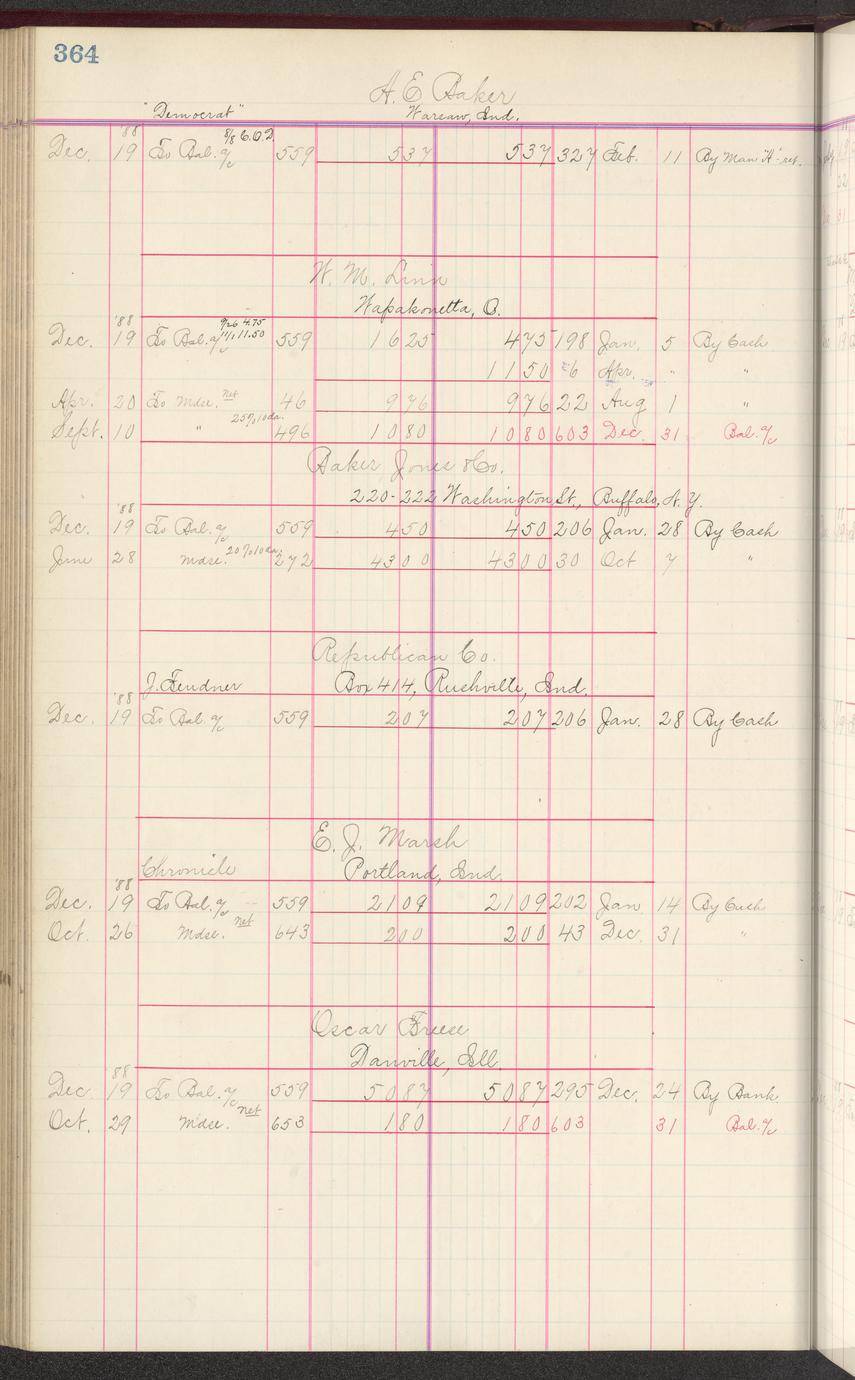 364
A. E. Baker
"Democrat" Warsaw, Ind.
'88 8/8 C.O.D.
Dec. 19 To Bal. a/c 559 5 37 5 37 327 Feb. 11 By Man "H" ret.
W. M. Linn
Wapakonetta, O.
'88 9/26 4.75
11/1 11.50
Dec. 19 To Bal. a/c 559 16 25 4 75 198 Jan. 5 By Cash
11 50 26 Apr. " "
Apr. 20 To Mdse. net 46 9 76 9 76 22 Aug 1 "
Sept. 10 " 25% 10 da. 496 10 80 10 80 603 Dec. 31 Bal. a/c
Baker, Jones & Co.
220-222 Washington St., Buffalo, N. Y.
'88
Dec. 19 To Bal. a/c 559 4 50 4 50 206 Jan. 28 By Cash
June 28 Mdse. 20% 10 da. 272 43 00 43 00 30 Oct 7 "
Republican Co.
J. Feudner Box 414, Rushville, Ind.
'88
Dec. 19 To Bal. a/c 559 2 07 2 07 206 Jan. 28 By Cash
E. J. Marsh
Chronicle Portland, Ind.
'88
Dec. 19 To Bal. a/c 559 21 09 21 09 202 Jan 14 By Cash
Oct. 26 Mdse. net 643 2 00 2 00 43 Dec. 31 "
Oscar Freese
Danville, Ill.
'88
Dec 19 To Bal. a/c 559 50 87 50 87 295 Dec. 24 By Bank
Oct. 29 Mdse. net 653 1 80 1 80 603 31 Bal. a/c